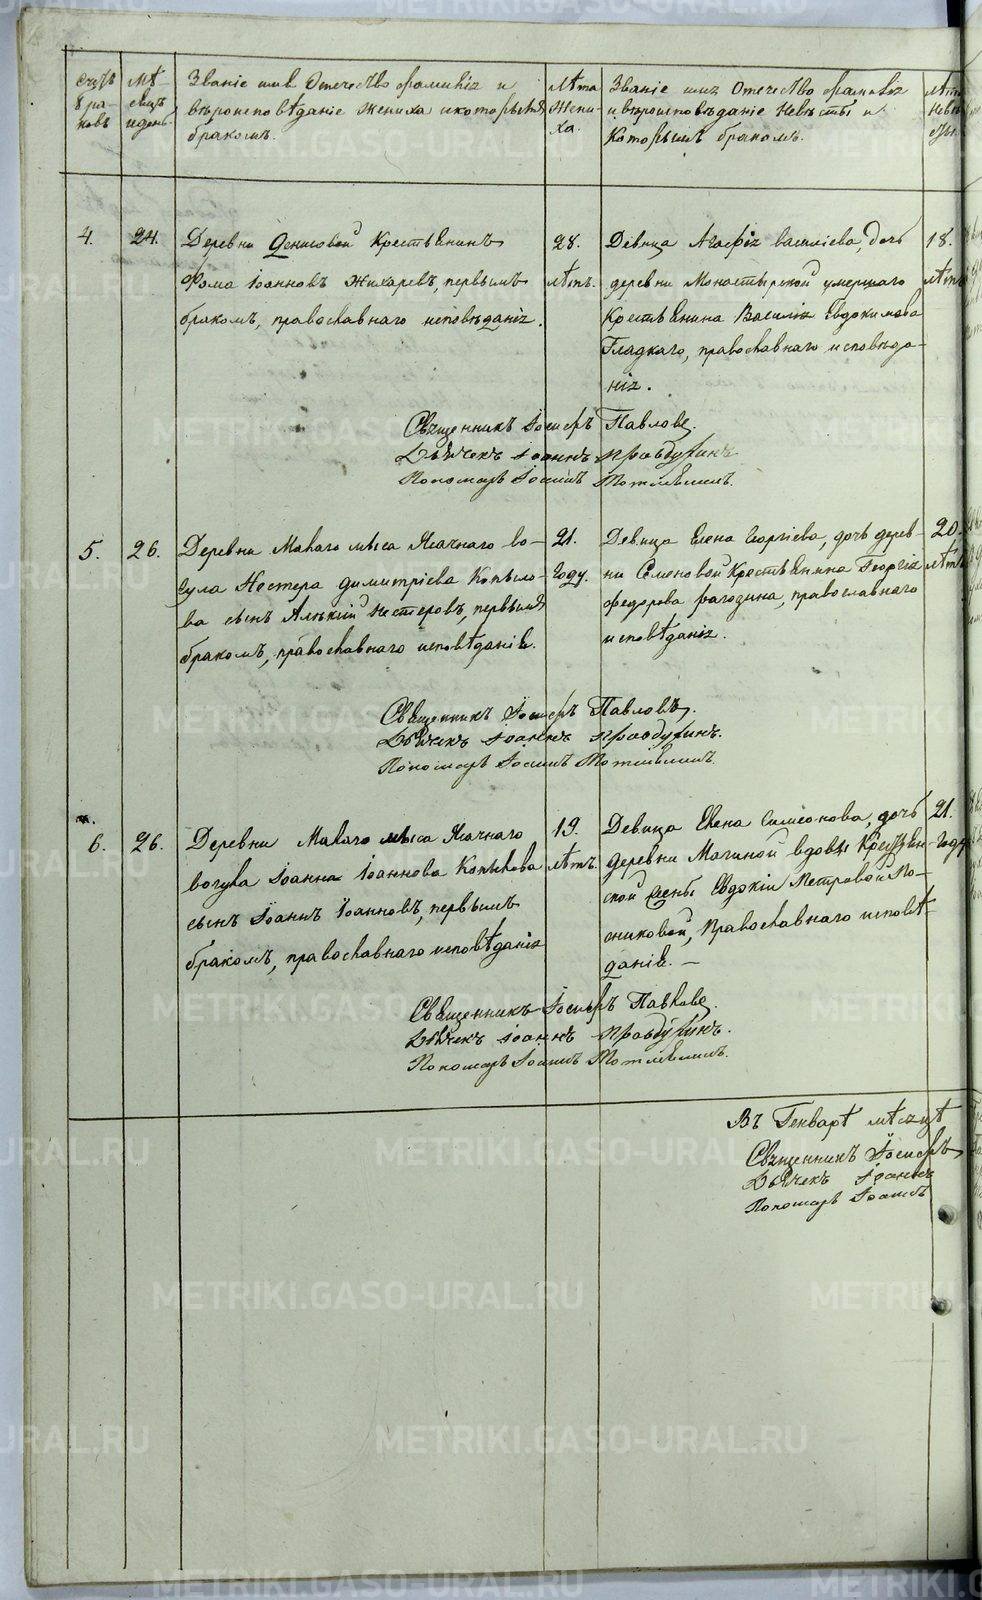 Счетъ бра-ковъ
Мѣ-сяцъ и день
Званіе имя Отечество фамилія и
вѣроисповѣданіе Жениха и которымъ
бракомъ.
Лѣта Жени-ха.
Званіе имя Отечество фамилія
и вѣроисповѣданіе Невѣсты и
Которымъ бракомъ.
Лѣта Невѣ-
4.
24.
Деревни Денисовой Крестьянинъ
Фома Іоанновъ Жихаревъ, первымъ
бракомъ, православнаго исповѣданія.
28.
лѣтъ.
Дѣвица Агафія Василіева, дочь
деревни Монастырской умершаго
Крестьянина Василія Евдокимова
Гладкаго, православнаго исповѣда-
нія.
18.
лѣтъ
Священникъ Іосифъ Павловъ.
Дьячекъ Іоаннъ Правдухинъ
Пономарь Іоаннъ
5.
26.
Деревни Малаго мыса Ясачнаго во-
гула Нестера Димитріева Копыло-
ва сынъ Алекѣй Нестеровъ, первымъ
бракомъ, православнаго исповѣданія.
21.
Году.
Девица Елена Георгіева, дочь дерев-
ни Семеновой Крестьянина Георгія
Федорова Рагозина, православнаго
исповѣданія.
20.
лѣтъ
Священникъ Іосифъ Павловъ.
Дьячекъ Іоаннъ Правдухинъ.
Пономарь Іоаннъ
6.
26.
Деревни Малаго мыса Ясачнаго
вогула Іоанна Іоаннова Копылова
сынъ Іоаннъ Іоанновъ, первымъ
бракомъ, православнаго исповѣданія
19.
лѣтъ.
Девица Елена Симеонова, дочь
деревни Матиной вдовы Крестьян-
ской жены Евдокіи Петровой По-
никовой, Православнаго исповѣ-
данія. —
21.
году
Священникъ Іосифъ Павловъ.
Дьячекъ Іоаннъ Правдухинъ.
Пономарь Іоаннъ
Въ Генварѣ мѣсяцѣ
Священникъ Іосифъ
Дьячекъ Іоаннъ
Пономарь Іоаннъ
METRIKI.GASO-URAL.RU